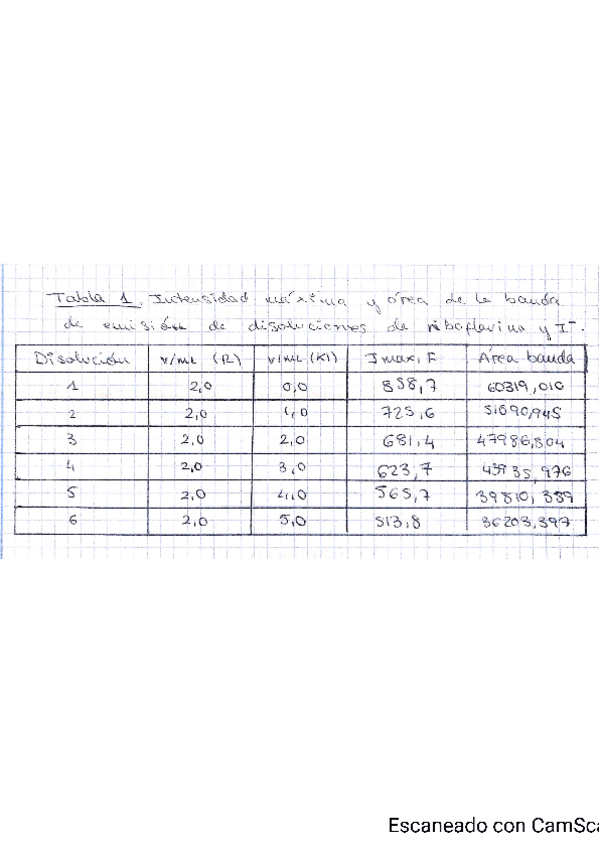 Tabla 1. Intensidad máxima y área de la banda
de emisión de disoluciones de riboflavina y I⁻.
Disolución v/mL (R) v/mL (KI) Imax, F Área banda
1 2,0 0,0 858,7 60319,010
2 2,0 1,0 725,6 51090,945
3 2,0 2,0 681,4 47986,804
4 2,0 3,0 623,7
5 2,0 4,0 565,7 39810,389
6 2,0 5,0 513,8 36203,397
Escaneado con CamSca